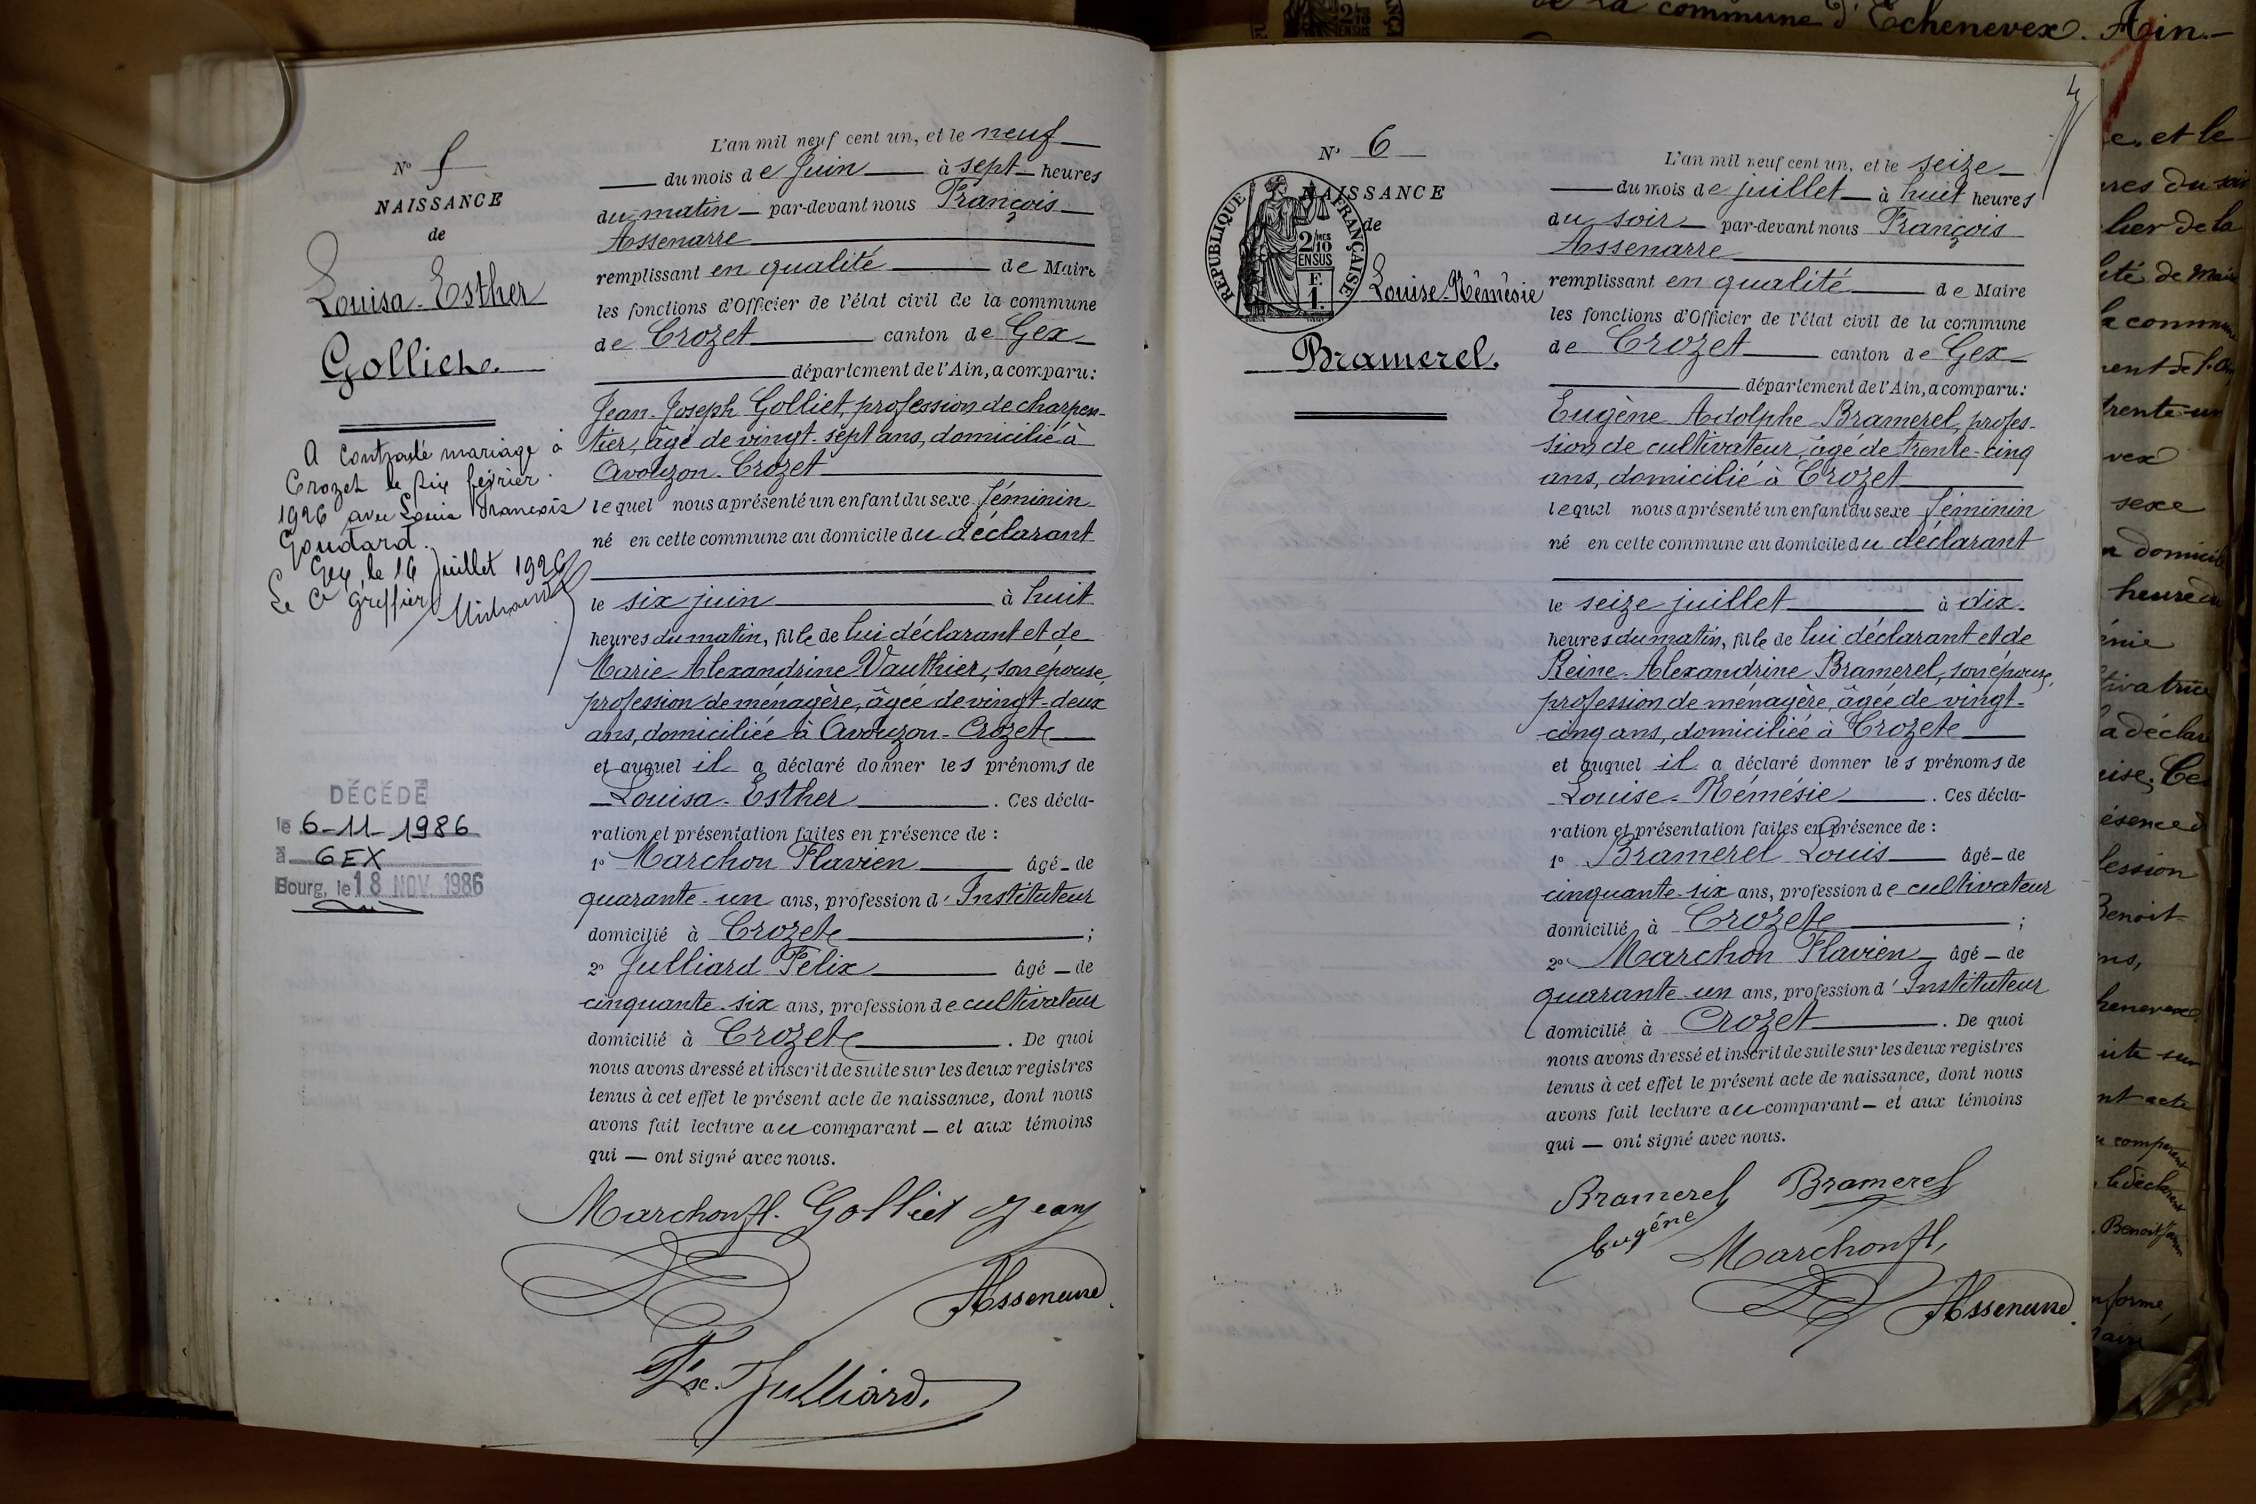 de la commune d'Echenevex. Ain.-
N° 5
NAISSANCE
de
Louisa-Esther
Golliet.
A contracté mariage à
Crozet le six février
1926 avec Louis François
Goudard.
Gex, le 16 Juillet 1926
Le Cis Greffier
DÉCÉDÉ
le 6-11-1986
à GEX
Bourg, le 18 NOV. 1986
L'an mil neuf cent un, et le neuf
du mois de Juin à sept heures
du matin par-devant nous François
Assenarre
remplissant en qualité de Maire
les fonctions d'Officier de l'état civil de la commune
de Crozet canton de Gex
département de l'Ain, a comparu:
Jean-Joseph Golliet, profession de charpen-
tier, âgé de vingt-sept ans, domicilié à
Avouzon-Crozet
lequel nous a présenté un enfant du sexe féminin
né en cette commune au domicile du déclarant
le six juin à huit
heures du matin, fille de lui déclarant et de
Marie-Alexandrine Vauthier, son épouse,
profession de ménagère, âgée de vingt-deux
ans, domiciliée à Avouzon-Crozet
et auquel il a déclaré donner les prénoms de
Louisa-Esther. Ces décla-
ration et présentation faites en présence de :
1° Marchon Flavien âgé de
quarante-un ans, profession d'Instituteur
domicilié à Crozet ;
2° Julliard Félix âgé de
cinquante-six ans, profession de cultivateur
domicilié à Crozet. De quoi
nous avons dressé et inscrit de suite sur les deux registres
tenus à cet effet le présent acte de naissance, dont nous
avons fait lecture au comparant et aux témoins
qui ont signé avec nous.
Marchon fl. Golliet Jean
Assenarre
Fx. Julliard.
4
N° 6
NAISSANCE
de
RÉPUBLIQUE FRANÇAISE
2/10 EN SUS
F.
1.
Louise-Némésie
Bramerel.
L'an mil neuf cent un, et le seize
du mois de juillet à huit heures
du soir par-devant nous François
Assenarre
remplissant en qualité de Maire
les fonctions d'Officier de l'état civil de la commune
de Crozet canton de Gex
département de l'Ain, a comparu:
Eugène Adolphe Bramerel, profes-
sion de cultivateur, âgé de trente-cinq
ans, domicilié à Crozet
lequel nous a présenté un enfant du sexe féminin
né en cette commune au domicile du déclarant
le seize juillet à dix
heures du matin, fille de lui déclarant et de
Reine-Alexandrine Bramerel, son épouse,
profession de ménagère, âgée de vingt-
cinq ans, domiciliée à Crozet
et auquel il a déclaré donner les prénoms de
Louise-Némésie. Ces décla-
ration et présentation faites en présence de :
1° Bramerel Louis âgé de
cinquante-six ans, profession de cultivateur
domicilié à Crozet ;
2° Marchon Flavien âgé de
quarante-un ans, profession d'Instituteur
domicilié à Crozet. De quoi
nous avons dressé et inscrit de suite sur les deux registres
tenus à cet effet le présent acte de naissance, dont nous
avons fait lecture au comparant et aux témoins
qui ont signé avec nous.
Bramerel Bramerel
Eugéne
Marchon fl,
Assenarre